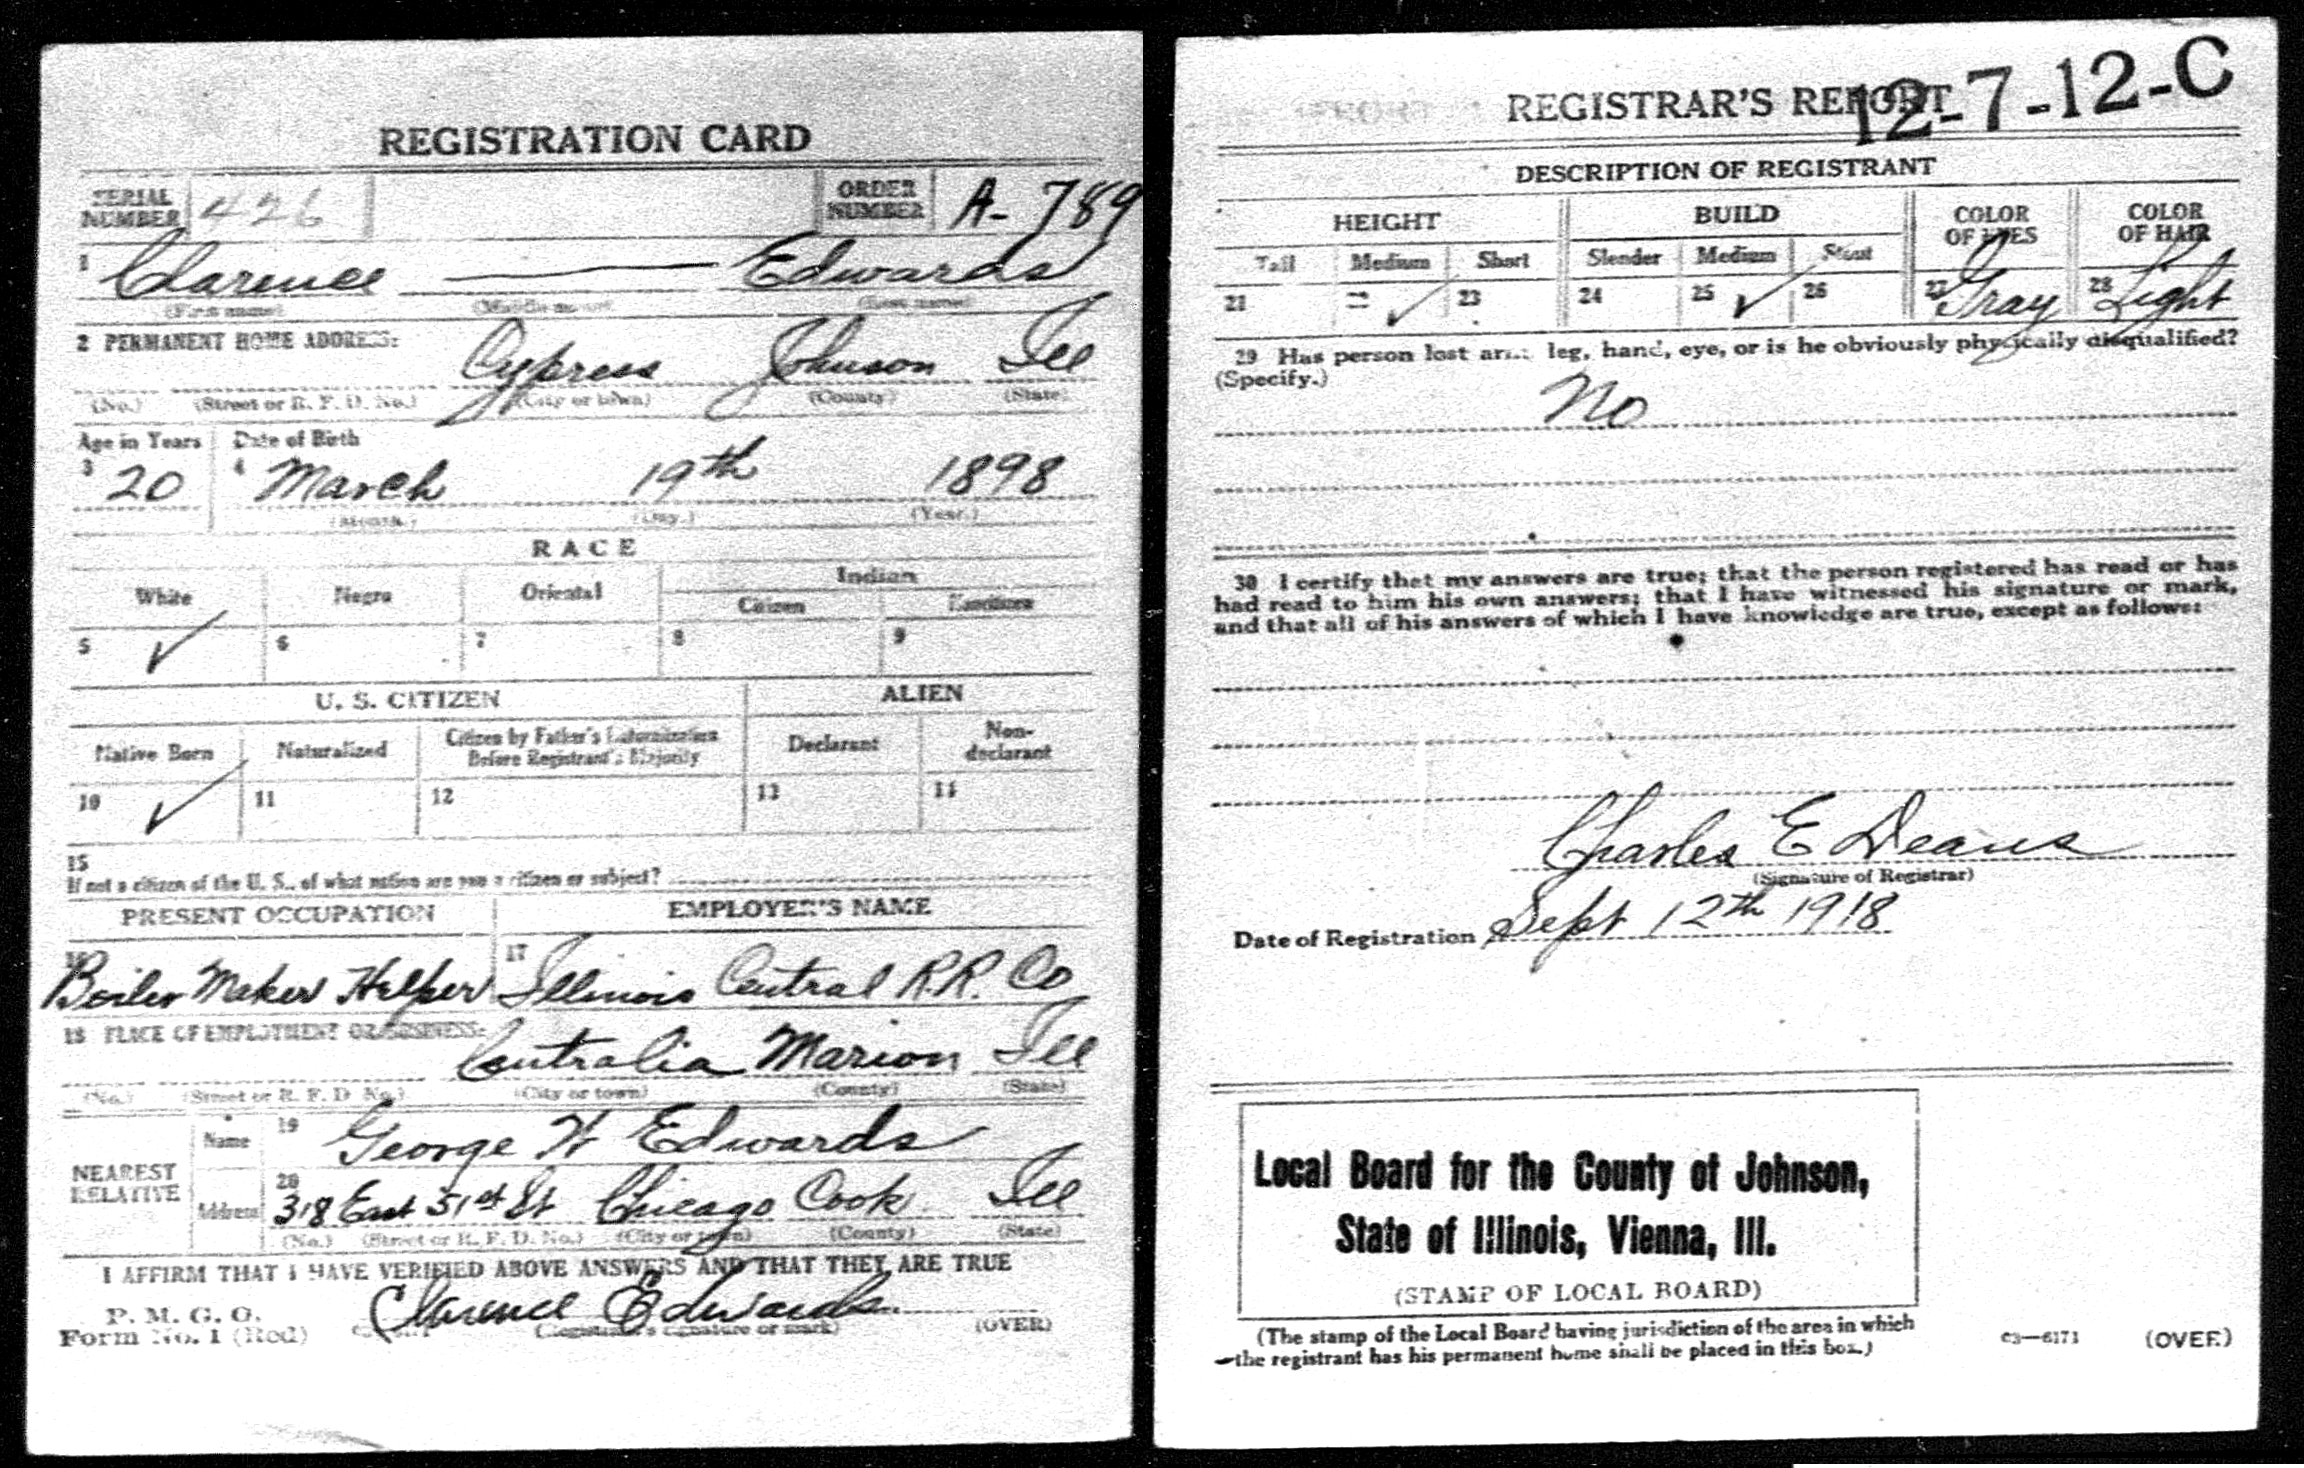 REGISTRATION CARD
SERIAL NUMBER 426 ORDER NUMBER A- 789
1 Clarence Edwards
(First name) (Middle name) (Last name)
2 PERMANENT HOME ADDRESS:
Cypress Johnson Ill
(No.) (Street or R. F. D. No.) (City or town) (County) (State)
Age in Years Date of Birth
3 20 4 March 19th 1898
(Month.) (Day.) (Year.)
RACE
White Negro Oriental Indian
Citizen Noncitizen
5 ✓ 6 7 8 9
U. S. CITIZEN ALIEN
Native Born Naturalized Citizen by Father's Naturalization Before Registrant's Majority Declarant Non-declarant
10 ✓ 11 12 13 14
15
If not a citizen of the U. S., of what nation are you a citizen or subject?
PRESENT OCCUPATION EMPLOYER'S NAME
16 Boiler Maker Helper 17 Illinois Central R.R. Co
18 PLACE OF EMPLOYMENT OR BUSINESS:
Centralia Marion Ill
(No.) (Street or R. F. D. No.) (City or town) (County) (State)
NEAREST RELATIVE
Name 19 George W Edwards
Address 20 318 East 51st St Chicago Cook Ill
(No.) (Street or R. F. D. No.) (City or town) (County) (State)
I AFFIRM THAT I HAVE VERIFIED ABOVE ANSWERS AND THAT THEY ARE TRUE
P. M. G. O.
Form No. 1 (Red) Clarence Edwards
(Registrant's signature or mark) (OVER)
REGISTRAR'S REPORT
12-7-12-C
DESCRIPTION OF REGISTRANT
HEIGHT BUILD COLOR OF EYES COLOR OF HAIR
Tall Medium Short Slender Medium Stout
21 22 ✓ 23 24 25 ✓ 26 27 Gray 28 Light
29 Has person lost arm, leg, hand, eye, or is he obviously physically disqualified?
(Specify.)
No
30 I certify that my answers are true; that the person registered has read or has
had read to him his own answers; that I have witnessed his signature or mark,
and that all of his answers of which I have knowledge are true, except as follows:
Charles E Deans
(Signature of Registrar)
Date of Registration Sept 12th 1918
Local Board for the County of Johnson,
State of Illinois, Vienna, Ill.
(STAMP OF LOCAL BOARD)
(The stamp of the Local Board having jurisdiction of the area in which
the registrant has his permanent home shall be placed in this box.)
03—6171 (OVER)